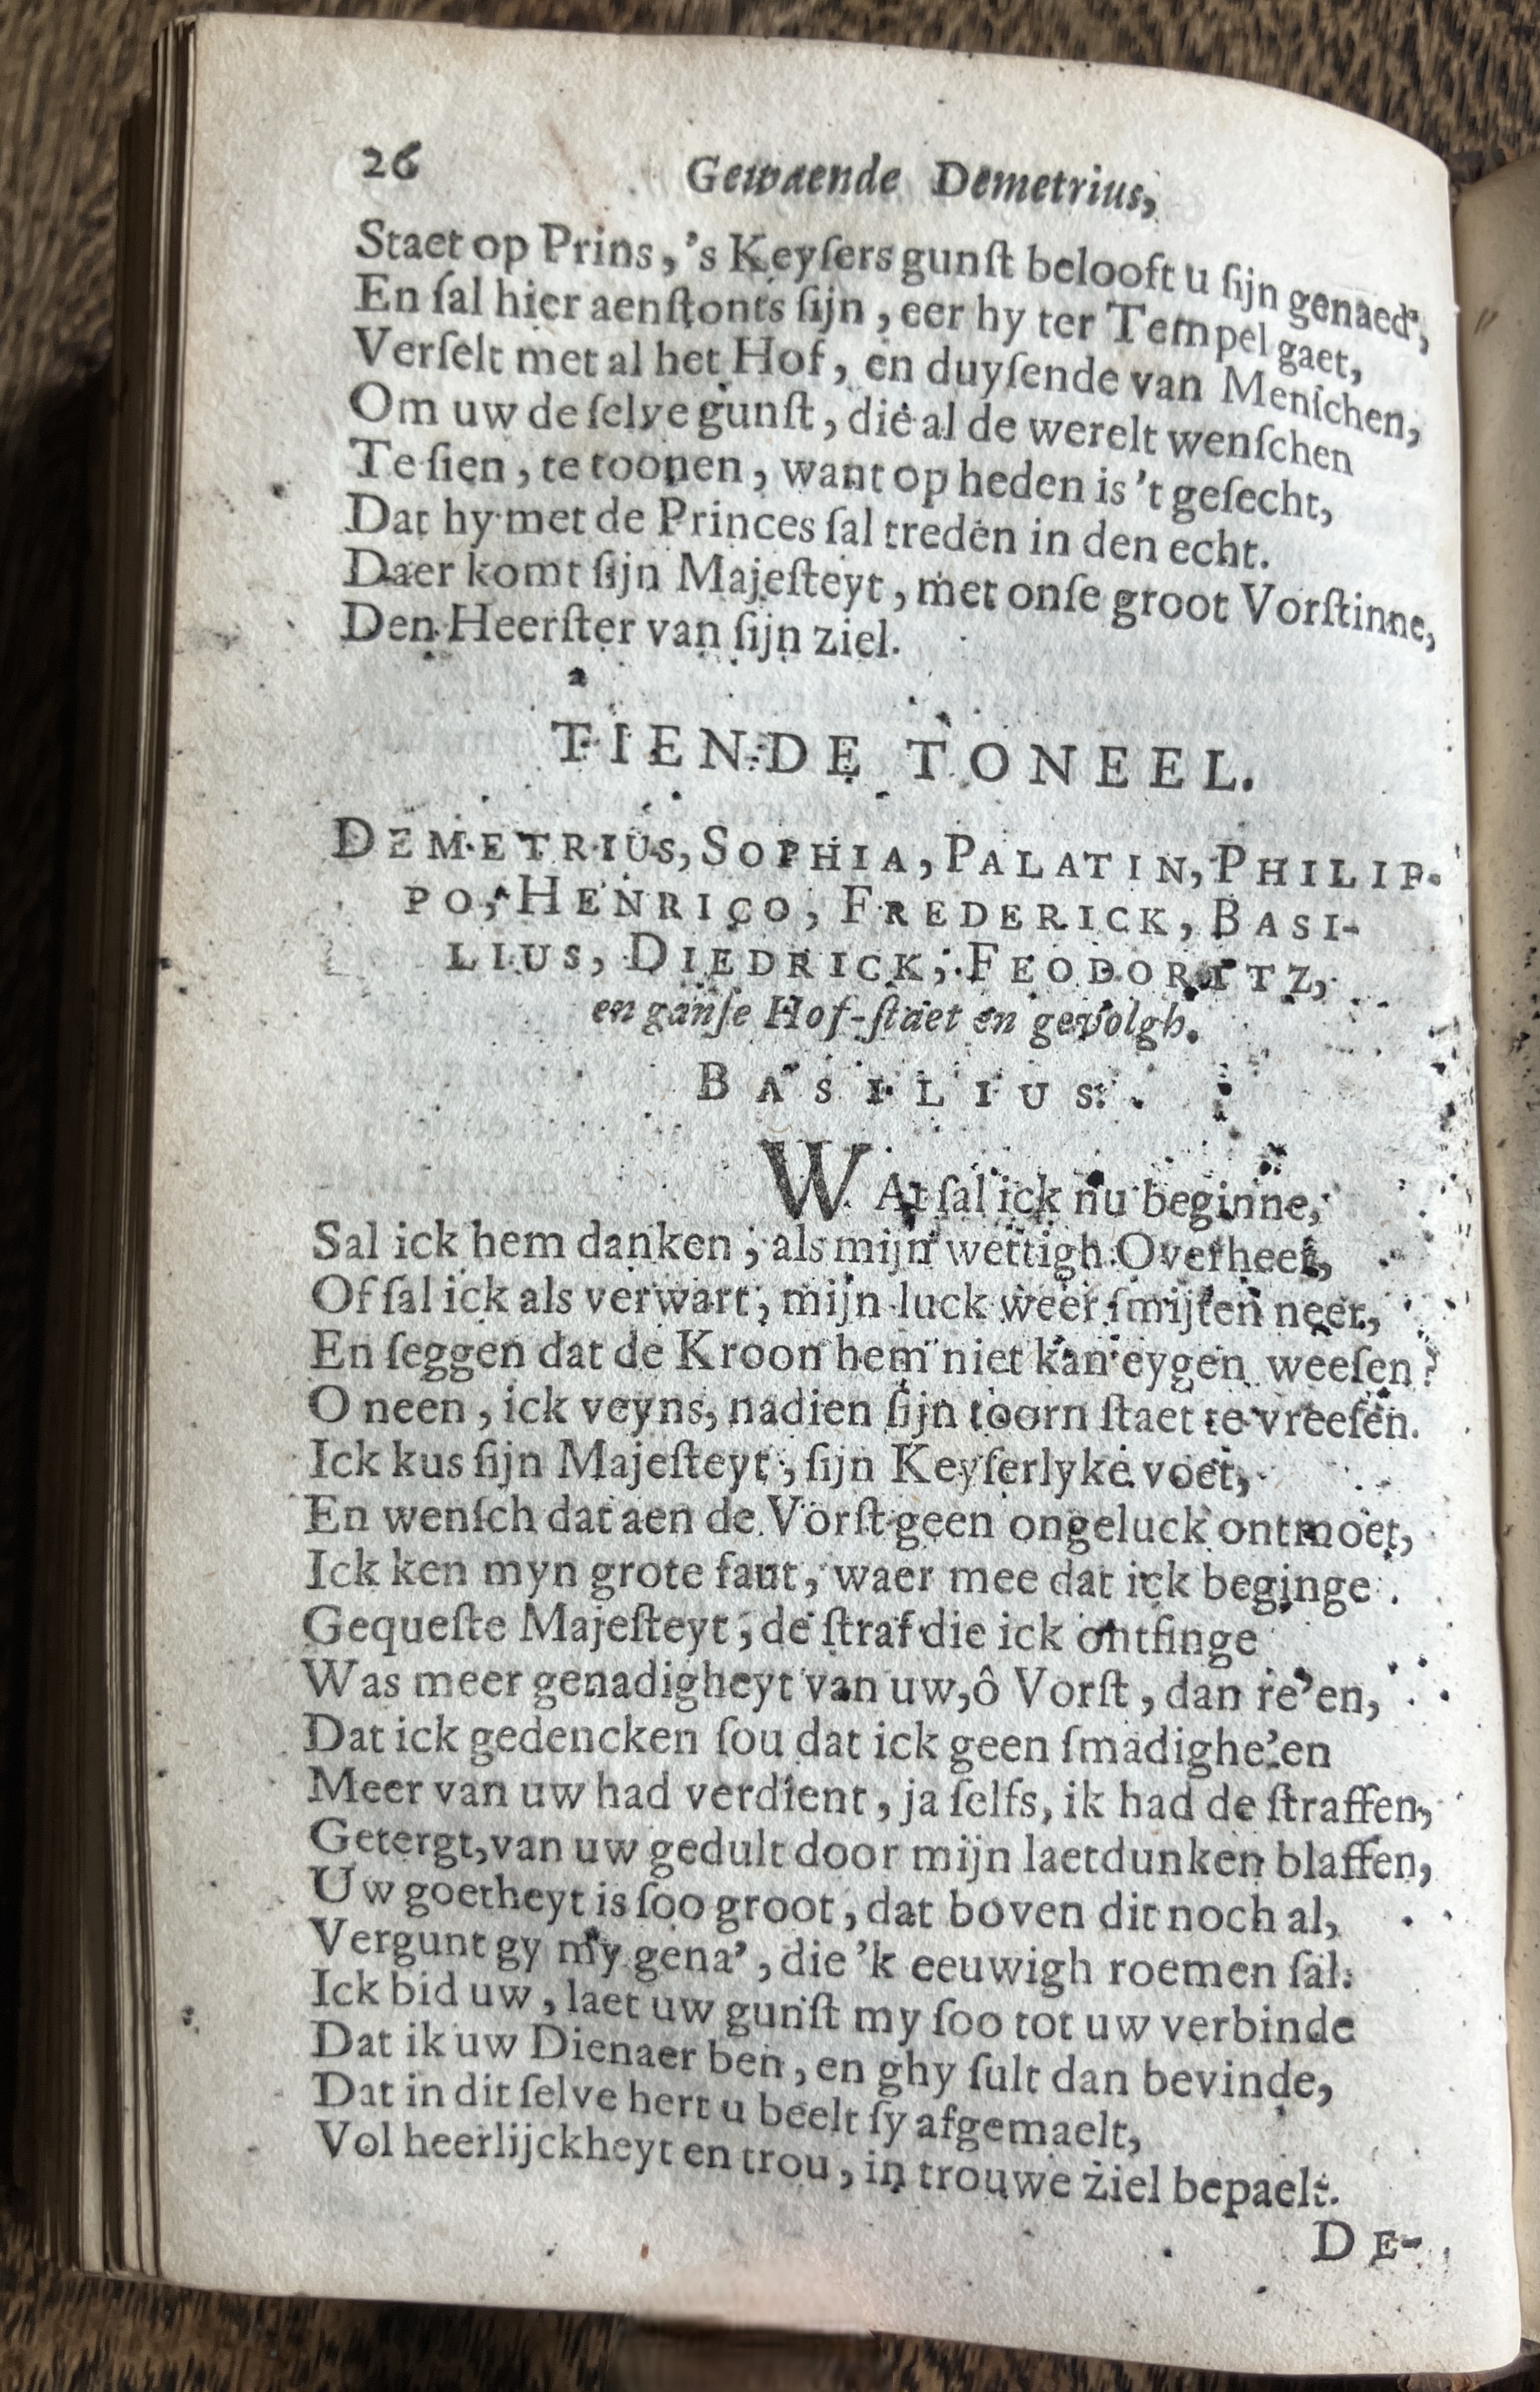 26 Gewaende Demetrius,
Staet op Prins, 's Keyſers gunſt belooft u ſijn genaed',
En ſal hier aenſtonts ſijn, eer hy ter Tempel gaet,
Verſelt met al het Hof, en duyſende van Menſchen,
Om uw de ſelve gunſt, die al de werelt wenſchen
Te ſien, te toonen, want op heden is 't geſecht,
Dat hy met de Princes ſal treden in den echt.
Daer komt ſijn Majeſteyt, met onſe groot Vorſtinne,
Den Heerſter van ſijn ziel.
TIENDE TONEEL.
DEMETRIUS, SOPHIA, PALATIN, PHILIP-
PO, HENRICO, FREDERICK, BASI-
LIUS, DIEDRICK, FEODORITZ,
en ganſe Hof-ſtaet en gevolgh.
BASILIUS.
WAt ſal ick nu beginne,
Sal ick hem danken, als mijn wettigh Overheer,
Of ſal ick als verwart, mijn luck weer ſmijten neer,
En ſeggen dat de Kroon hem niet kan eygen weeſen?
O neen, ick veyns, nadien ſijn toorn ſtaet te vreeſen.
Ick kus ſijn Majeſteyt, ſijn Keyſerlyke voet,
En wenſch dat aen de Vorſt geen ongeluck ontmoet,
Ick ken myn grote faut, waer mee dat ick beginge
Gequeſte Majeſteyt, de ſtraf die ick ontfinge
Was meer genadigheyt van uw, ô Vorſt, dan re'en,
Dat ick gedencken ſou dat ick geen ſmadighe'en
Meer van uw had verdient, ja ſelfs, ik had de ſtraffen,
Getergt, van uw gedult door mijn laetdunken blaffen,
Uw goetheyt is ſoo groot, dat boven dit noch al,
Vergunt gy my gena', die 'k eeuwigh roemen ſal.
Ick bid uw, laet uw gunſt my ſoo tot uw verbinde
Dat ik uw Dienaer ben, en ghy ſult dan bevinde,
Dat in dit ſelve hert u beelt ſy afgemaelt,
Vol heerlijckheyt en trou, in trouwe ziel bepaelt.
DE-